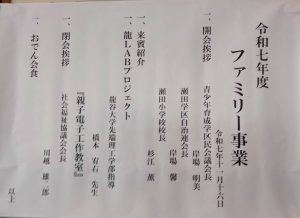 令和七年度
ファミリー事業
令和七年十一月十六日
一、開会挨拶
青少年育成学区民会議会長
岸場 明美
瀬田学区自治連会長
岸場 馨
瀬田小学校校長
杉江 薫
一、来賓紹介
一、龍LABプロジェクト
龍谷大学先端理工学部指導
橋本 宥右 先生
『親子電子工作教室』
一、閉会挨拶
社会福祉協議会会長
川越 雄二郎
一、おでん会食
以上